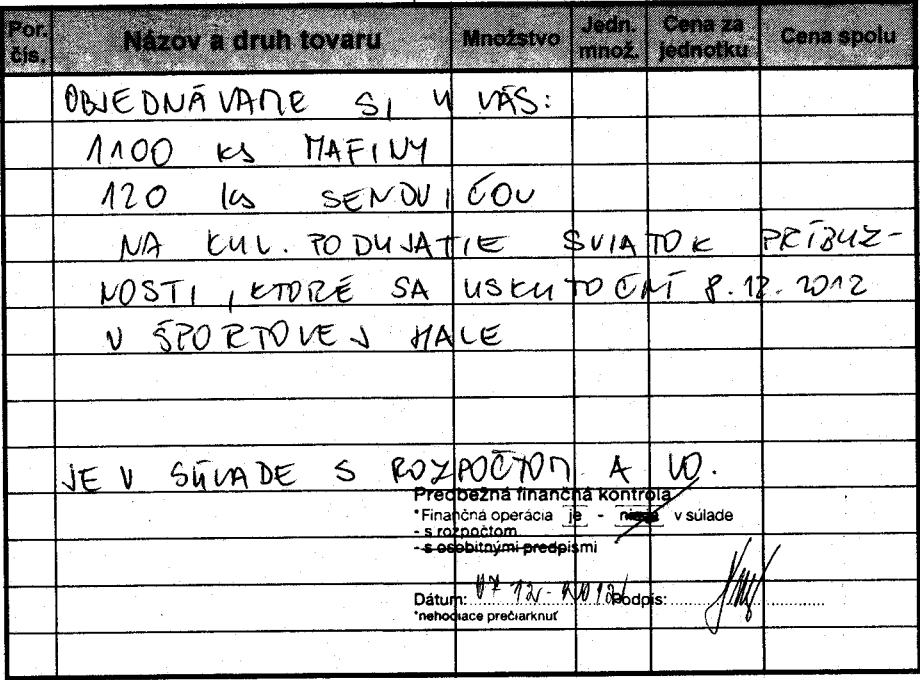 Por. čís. Názov a druh tovaru Množstvo Jedn. množ. Cena za jednotku Cena spolu
OBJEDNÁVAME SI U VÁS:
1100 ks MAFINY
120 ks SENDVIČOV
NA KUL. PODUJATIE SVIATOK PRÍBUZ-
NOSTI, KTORÉ SA USKUTOČNÍ 8.12.2012
V ŠPORTOVEJ HALE
JE V SÚLADE S ROZPOČTOM A VO.
Predbežná finančná kontrola
*Finančná operácia je - nieje v súlade
- s rozpočtom
- s osobitnými predpismi
Dátum: 07 12. 2012 Podpis:
*nehodiace prečiarknuť